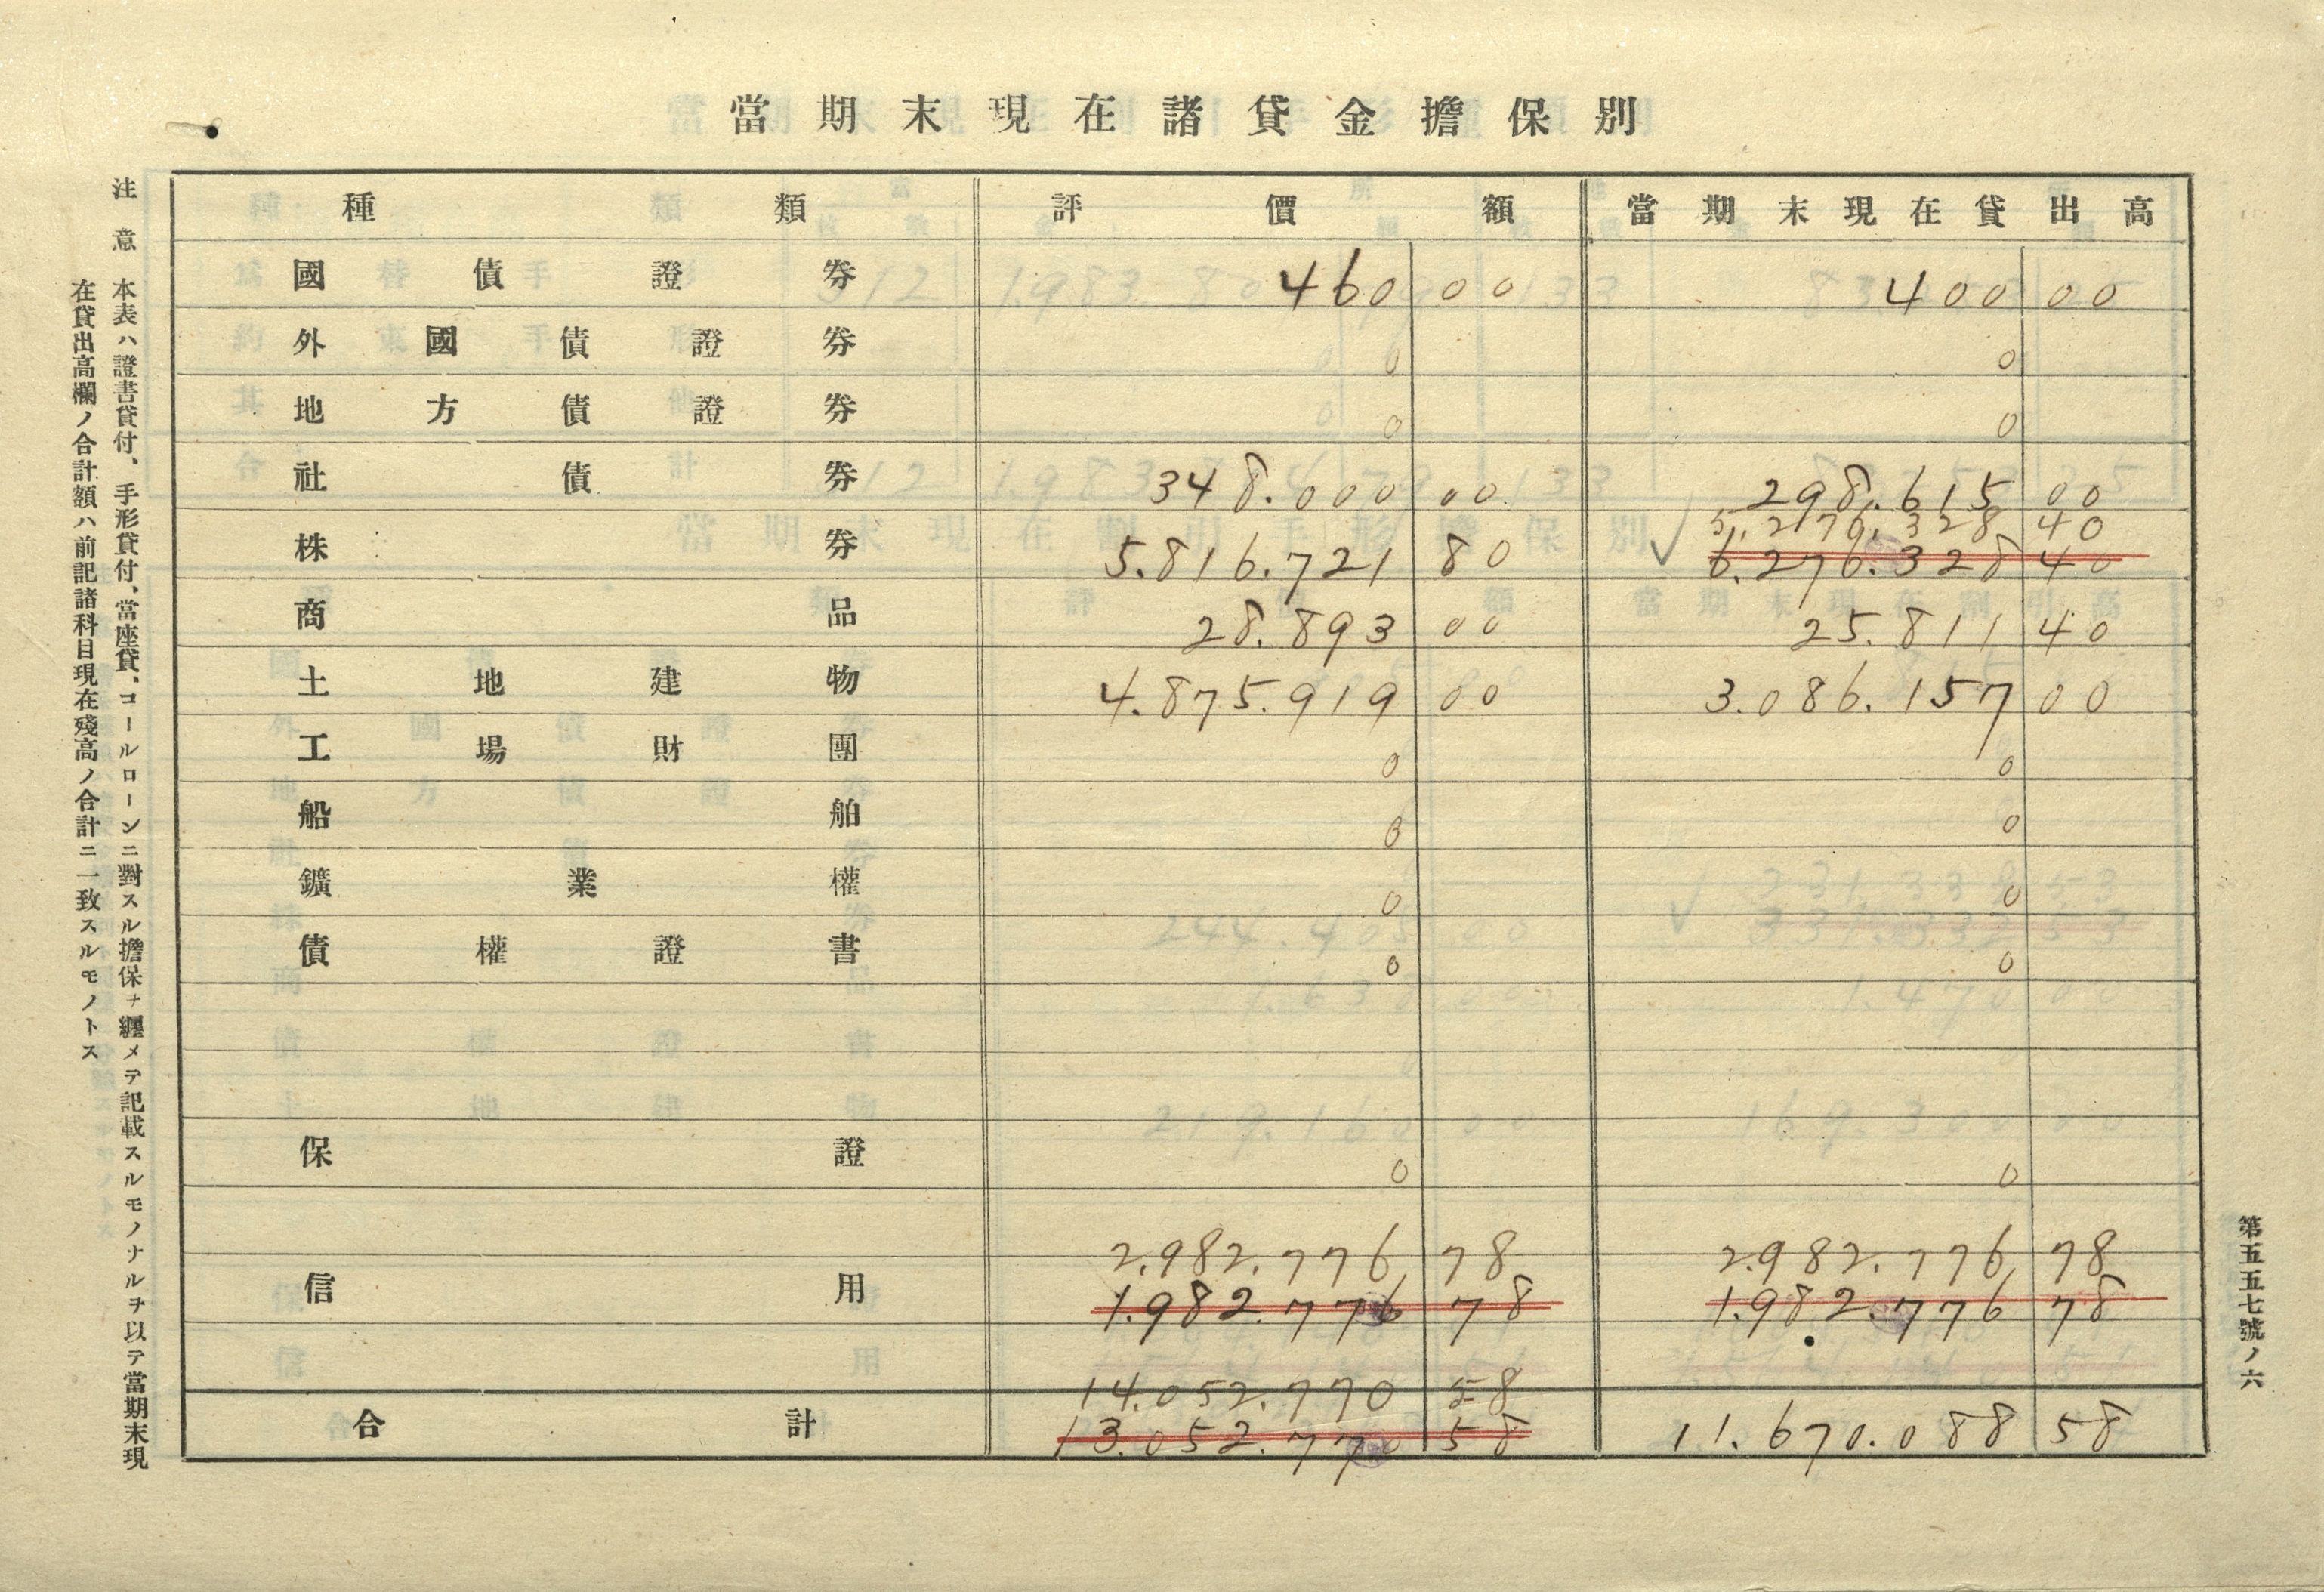 當期末現在諸貸金擔保別
種類 評價額 當期末現在貸出高
國債證券 460 00 400 00
外國債證券 0 0
地方債證券 0 0
社債券 348.000 00 298.615 00
5.276.328 40
株券 5.816.721 80 6.276.328 40
商品 28.893 00 25.811 40
土地建物 4.875.919 00 3.086.157 00
工場財團 0 0
船舶 0 0
鑛業權 0 0
債權證書 0 0
保證 0 0
2.982.776 78 2.982.776 78
信用 1.982.776 78 1.982.776 78
14.052.770 58
合計 13.052.770 58 11.670.088 58
第五五七號ノ六
注意 本表ハ證書貸付、手形貸付、當座貸、コールローンニ對スル擔保ヲ纒メテ記載スルモノナルヲ以テ當期末現
在貸出高欄ノ合計額ハ前記諸科目現在殘高ノ合計ニ一致スルモノトス